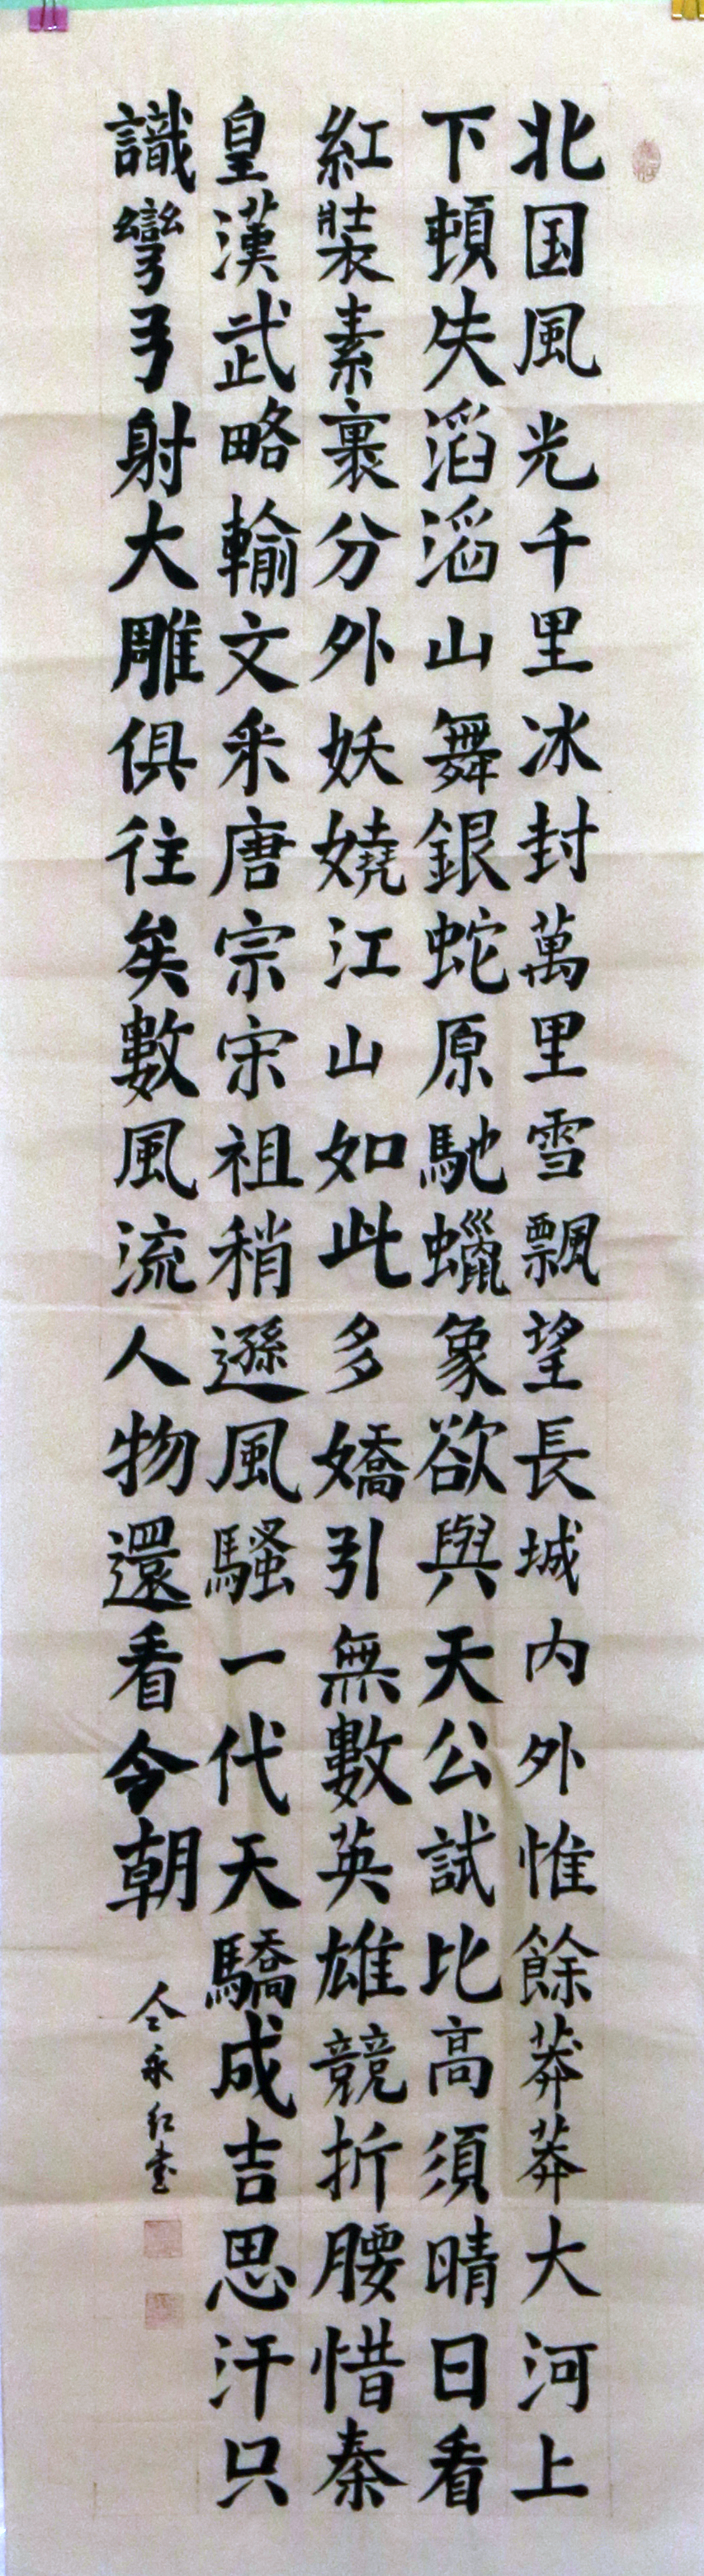 北国風光千里冰封萬里雪飄望長城内外惟餘莽莽大河上
下頓失滔滔山舞銀蛇原馳蠟象欲與天公試比高須晴日看
紅裝素裹分外妖嬈江山如此多嬌引無數英雄競折腰惜秦
皇漢武略輸文采唐宗宋祖稍遜風騷一代天驕成吉思汗只
識彎弓射大雕俱往矣數風流人物還看今朝
仝永红書